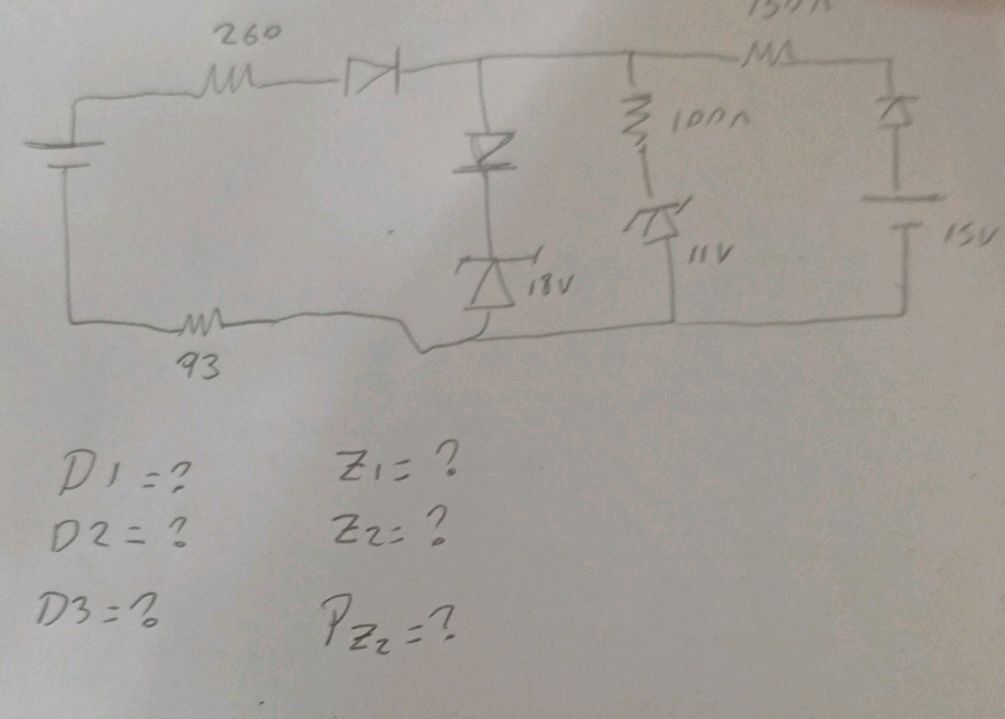 260
100Ω
15V
11V
18V
93
D1=?
Z1=?
D2=?
Z2=?
D3=?
PZ2=?